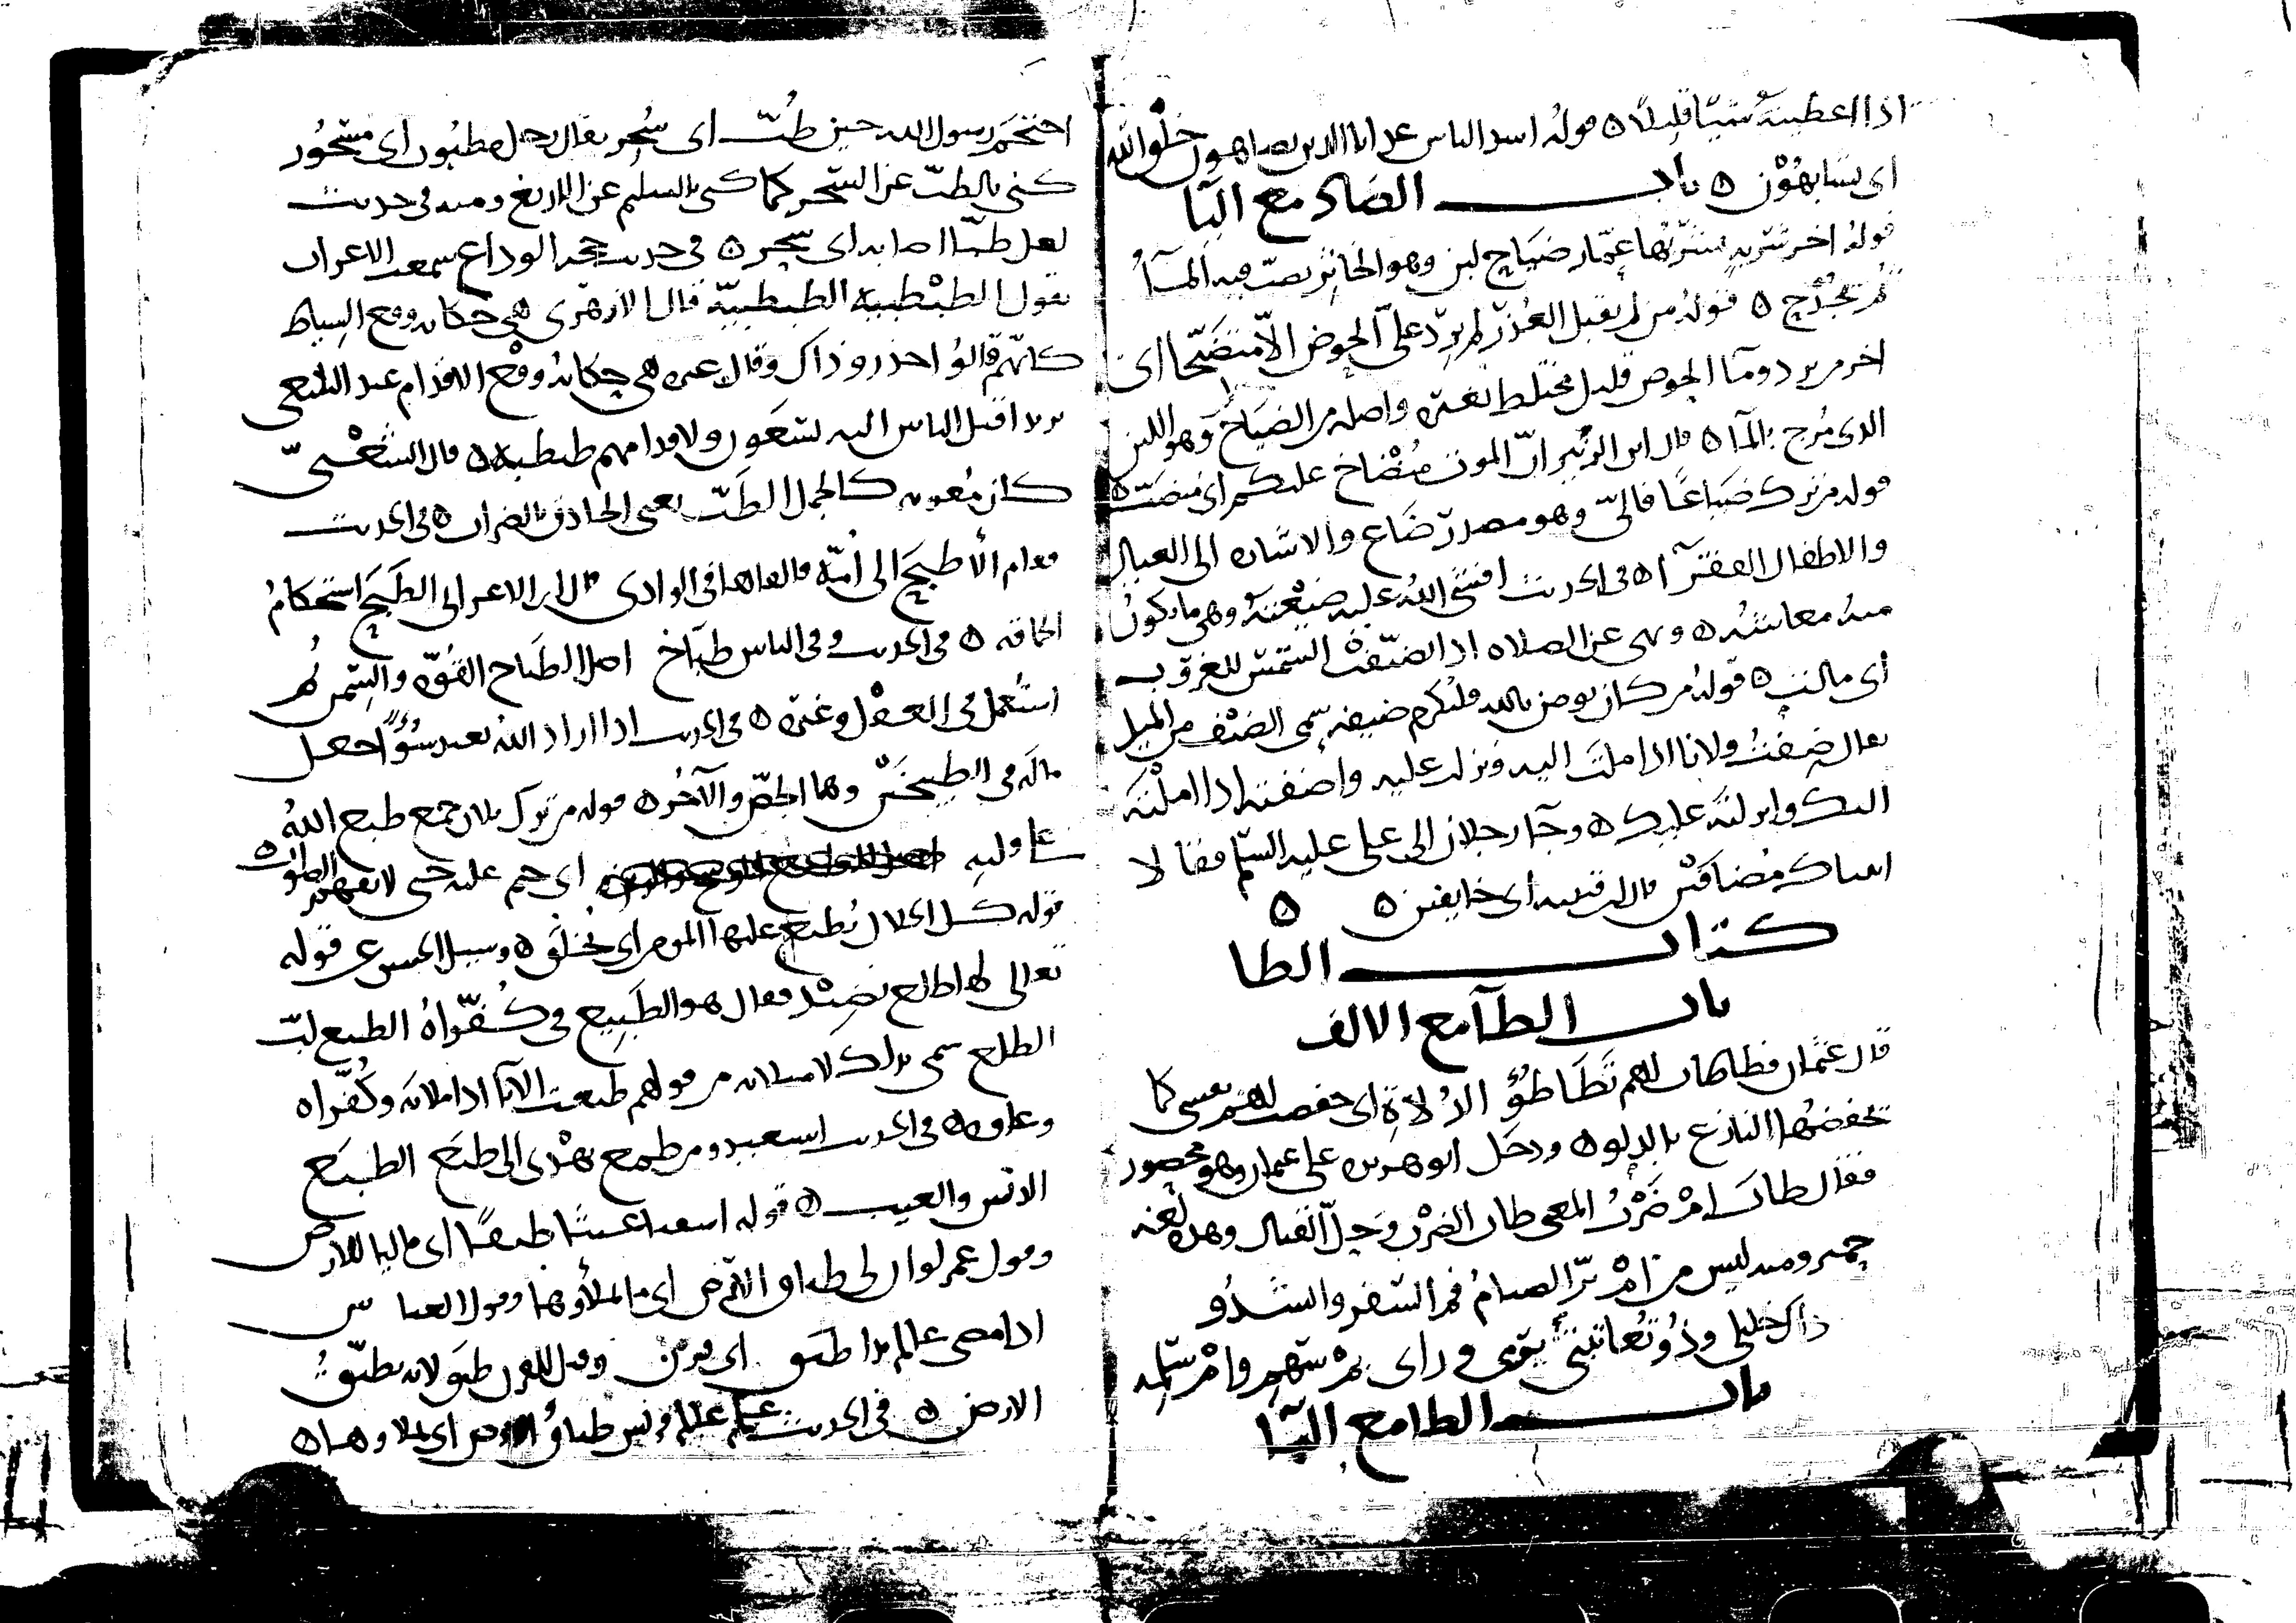 اذا اعطيته شيئا قليلا ه قوله اشد الناس عذابا الذين يضاهون خلق الله
اى يشابهون ه باب الضاد مع اليا
قوله اخر شربة تشربها عمار ضياح لبن وهو الخاثر يصب فيه المآ
ثم يجدح ه قوله من لم يقبل العذر لم يرد على الحوض الا متضيحا اى
اخر من يرد وما الحوض قليل مختلط بغيره واصله من الضياح وهو اللبن
الذى مزج بالمآ ه قال ابن الزبير ان الموت منضاخ عليكم اى منصب ه
قوله من ترك ضياعا فالى وهو مصدر ضاع والاشاره الى العيال
والاطفال الفقرآ ه فى الحديث افشى الله عليه ضيعته وهى ما يكون
منه معاشه ه ونهى عن الصلاه اذا تضيفت الشمس للغروب
اى مالت ه قوله من كان يومن بالله فليكرم ضيفه سمى الضيف من الميل
يقال ضفت فلانا اذا ملت اليه ونزلت عليه واضفته اذا املته
اليك وانزلته عليك ه وجآ رجلان الى على عليه السلم فقالا
اتيناك مضافين قال ابن قتيبه اى خايفين ه ه
كتاب الطا
باب الطآ مع الالف
قال عثمان تطاطات لهم تطاطؤ الدلاة اى خفضت لهم نفسى كما
يخفضها النازع بالدلو ه ودخل ابو هريره على عثمان وهو محصور
فقال طاب امضرب المعنى طاب الضرب وحل القتال وهذه لغه
حمير ومنه ليس من امبر الصيام فى السفر وانشدو
ذاك خليلى وذو يعاتبنى يرمى وراى بامسهم وامسلمه
باب الطا مع اليآ
احتجم رسول الله حين طب اى سحر يقال رجل مطبوب اى مسحور
كنى بالطب عن السحر كما كنى بالسليم عن اللديغ ومنه فى حديث
لعل طبا اصابه اى سحر ه فى حديث حجة الوداع سمعت الاعراب
يقول الطبطبية الطبطبية قال الازهرى هى حكاية وقع السياط
كانهم قالوا احذرو ذاك وقال غيره هى حكاية وقع الاقدام عند السعى
يريد اقبل الناس اليه يسعون ولاقدامهم طبطبه ه قال الشعبى
كان معويه كالجمل الطب يعنى الحاذق بالضراب ه فى الحديث
فقام الاطبج الى امه فالقاها فى الوادى قال ابن الاعرابى الطبج استحكام
الحماقه ه فى الحديث وفى الناس طباخ اصل الطباخ القوه والسمن ثم
استعمل فى العقل وغيره ه فى الحديث اذا اراد الله بعبد سوءا جعل
ماله فى الطبيخين وهما الجص والآجر ه قوله من ترك ثلاث جمع طبع الله
على قلبه اى ختم عليه حتى لا يفهم الصواب ه
قوله كل الخلال يطبع عليها المومن اى يخلق ه وسيل الحسن عن قوله
تعالى لها طلع نضيد فقال هو الطبيع فى كفراه الطبيع لب
الطلع سمى بذلك لامتلائه من قولهم طبعت الانآ اذا ملاته وكفراه
وعاوه ه فى الحديث استعيذو من طمع يهدى الى طبع الطبع
الدنس والعيب ه قوله اسقنا غيثا طبقا اى ماليا للارض
وقول عمر لو ان لى طباق الارض اى ما يملأوها وقول العباس
اذا مضى عالم بدا طبق اى قرن وقيل للقرن طبق لانه يطبق
الارض ه فى الحديث علم عالم قريش طباق الارض اى يملاوها ه